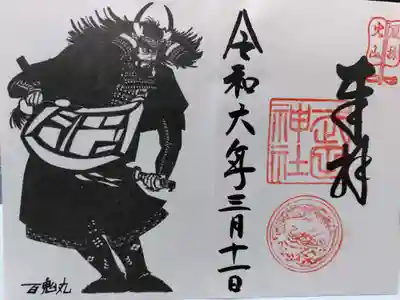 奉拝
神社
令和六年三月十一日
百鬼丸